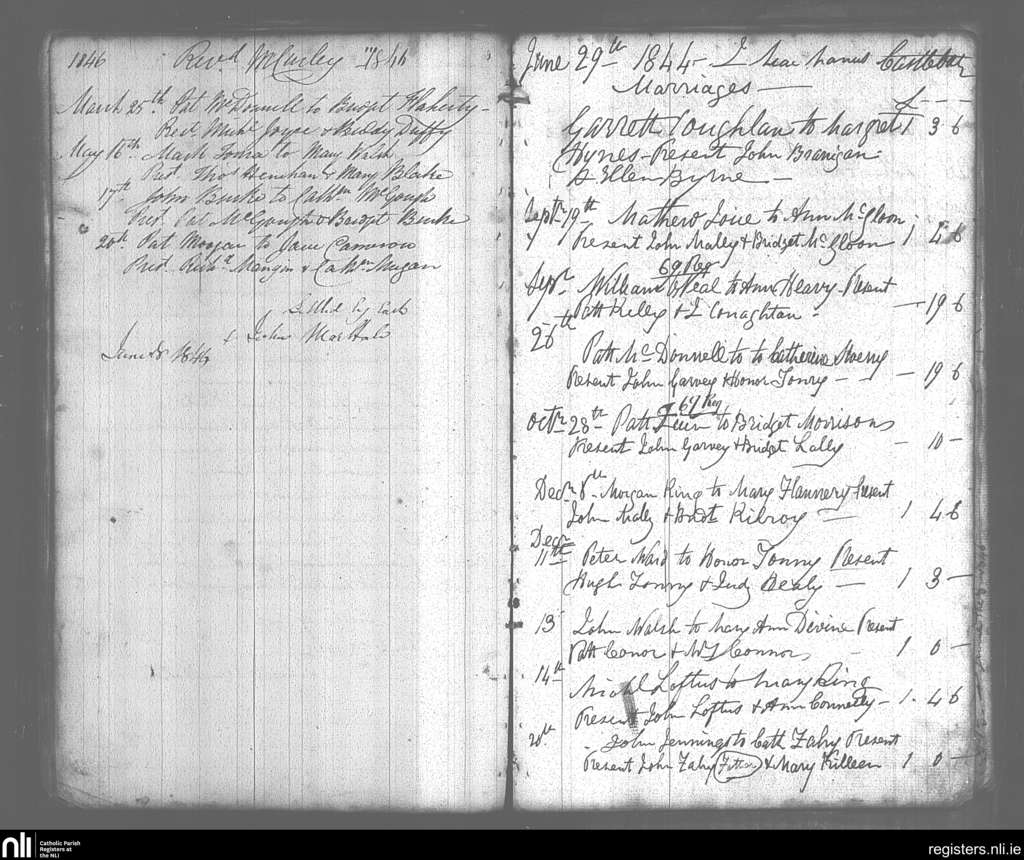 1846 Revd McCurley 1846
March 25th Pat McDonnell to Bridget Flaherty -
Red Michl Joyce & Biddy Duffy
May 16th Mark to Mary Walsh
Pred. Thos Henehan & Mary Blake
17th John Burke to Cathn McGough
Pred. Pat McGough & Bridget Burke
20th Pat Morgan to Jane Cameron
Pred. Richd Mangin & Cathn Mugan
Settled by Cash
John
June 8 1846
June 29th 1844 - Castlebar
Marriages - £ - - -
Garrett Coughlan to Margret 1 3 6
Hynes - Present John Branigan
& Ellen Byrne -
Septr 19th Mathew Joice to Ann McGloon
Present John Maley & Bridget McGloon 1 4 6
69 Reg
Sepr William O'Neal to Ann Heavy - Present
Patt Kelly & J Conaghtan - 19 6
26th
Patt McDonnell to to Catherine
Present John Garvey & Honor Tonry - - - 19 6
69 Reg
Octr 28th Patt to Bridget Morrison
Present John Garvey & Bridget Lally - 10 -
Decr 8th Morgan King to Mary Flannery Present
John & Bridt Kilroy - 1 4 6
Decr
11th Peter Ward to Honor Tonry Present
Hugh Tonry & Judy Healy - 1 3 -
13 John Walsh to Mary Ann Divine Present
Patt Conor & Wm Connor 1 0 -
14th
Michl Loftus to Mary King
Present John Loftus & Ann Conneelly - 1 - 4 6
20th
John Jennings to Cath Fahy Present
Present John Fahy (Father) & Mary Killeen 1 0 -
nli
Catholic Parish
Registers at
the NLI
registers.nli.ie